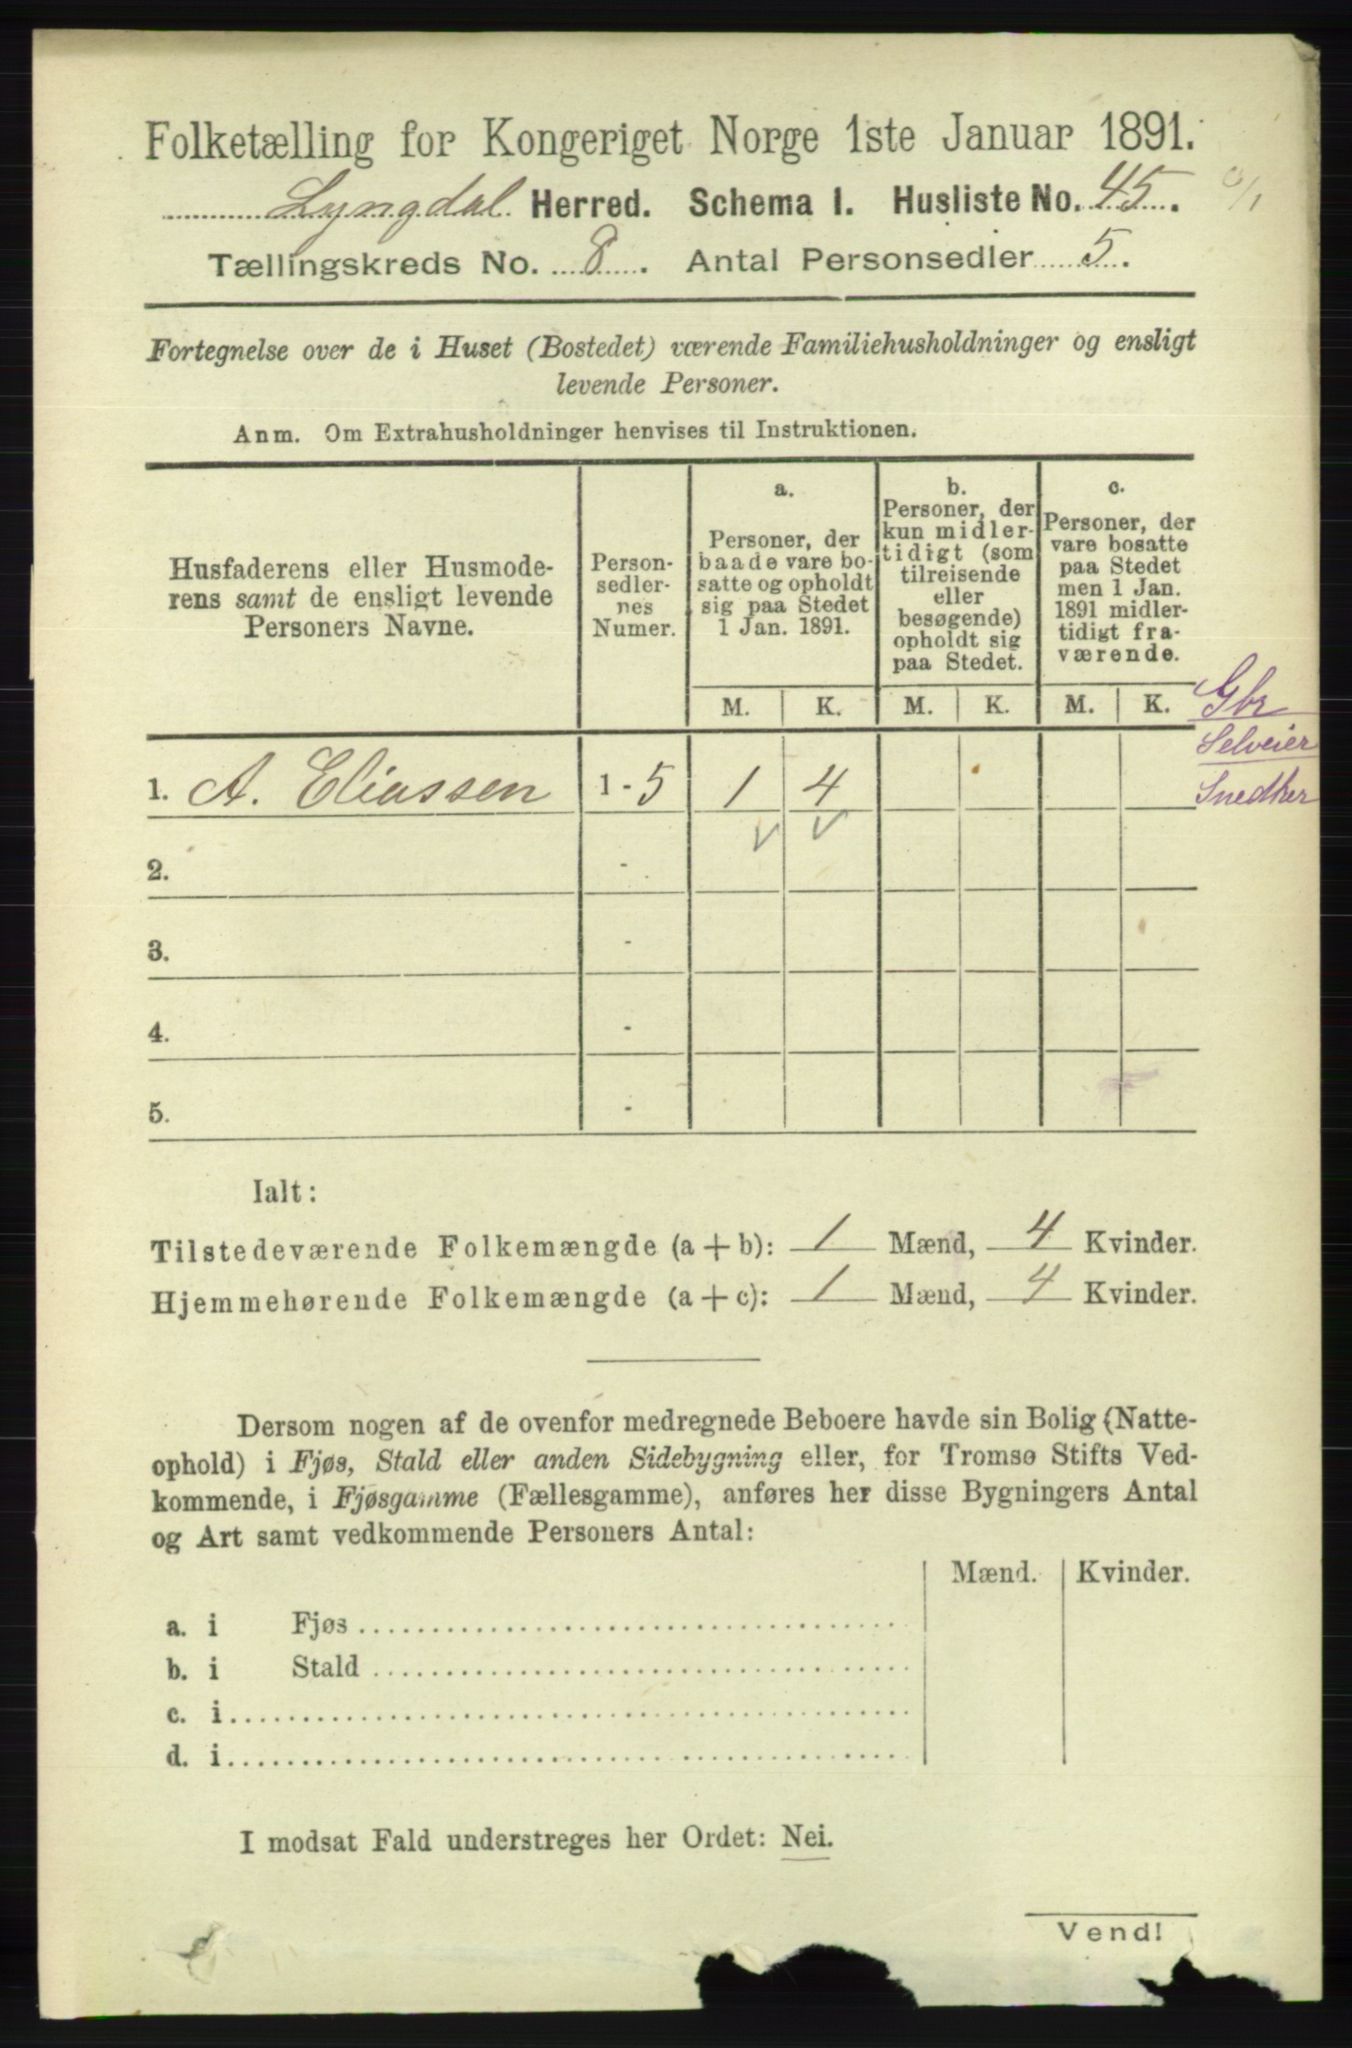 Folketælling for Kongeriget Norge 1ste Januar 1891.
Lyngdal Herred. Schema I. Husliste No. 45.
Tællingskreds No. 8. Antal Personsedler 5.
Fortegnelse over de i Huset (Bostedet) værende Familiehusholdninger og ensligt
levende Personer.
Anm. Om Extrahusholdninger henvises til Instruktionen.
Husfaderens eller Husmode-
rens samt de ensligt levende
Personers Navne.
Person-
sedler-
nes
Numer.
a.
Personer, der
baade vare bo-
satte og opholdt
sig paa Stedet
1 Jan. 1891.
b.
Personer, der
kun midler-
tidigt (som
tilreisende
eller
besøgende)
opholdt sig
paa Stedet.
c.
Personer, der
vare bosatte
paa Stedet
men 1 Jan.
1891 midler-
tidigt fra-
værende.
M. K. M. K. M. K.
Gbr
Selveier
Snedker
1. A. Eliassen 1-5 1 4
2. -
3. -
4. -
5. -
Ialt:
Tilstedeværende Folkemængde (a+b): 1 Mænd, 4 Kvinder.
Hjemmehørende Folkemængde (a+c): 1 Mænd, 4 Kvinder.
Dersom nogen af de ovenfor medregnede Beboere havde sin Bolig (Natte-
ophold) i Fjøs, Stald eller anden Sidebygning eller, for Tromsø Stifts Ved-
kommende, i Fjøsgamme (Fællesgamme), anføres her disse Bygningers Antal
og Art samt vedkommende Personers Antal:
Mænd. Kvinder.
a. i Fjøs
b. i Stald
c. i
d. i
I modsat Fald understreges her Ordet: Nei.
Vend!